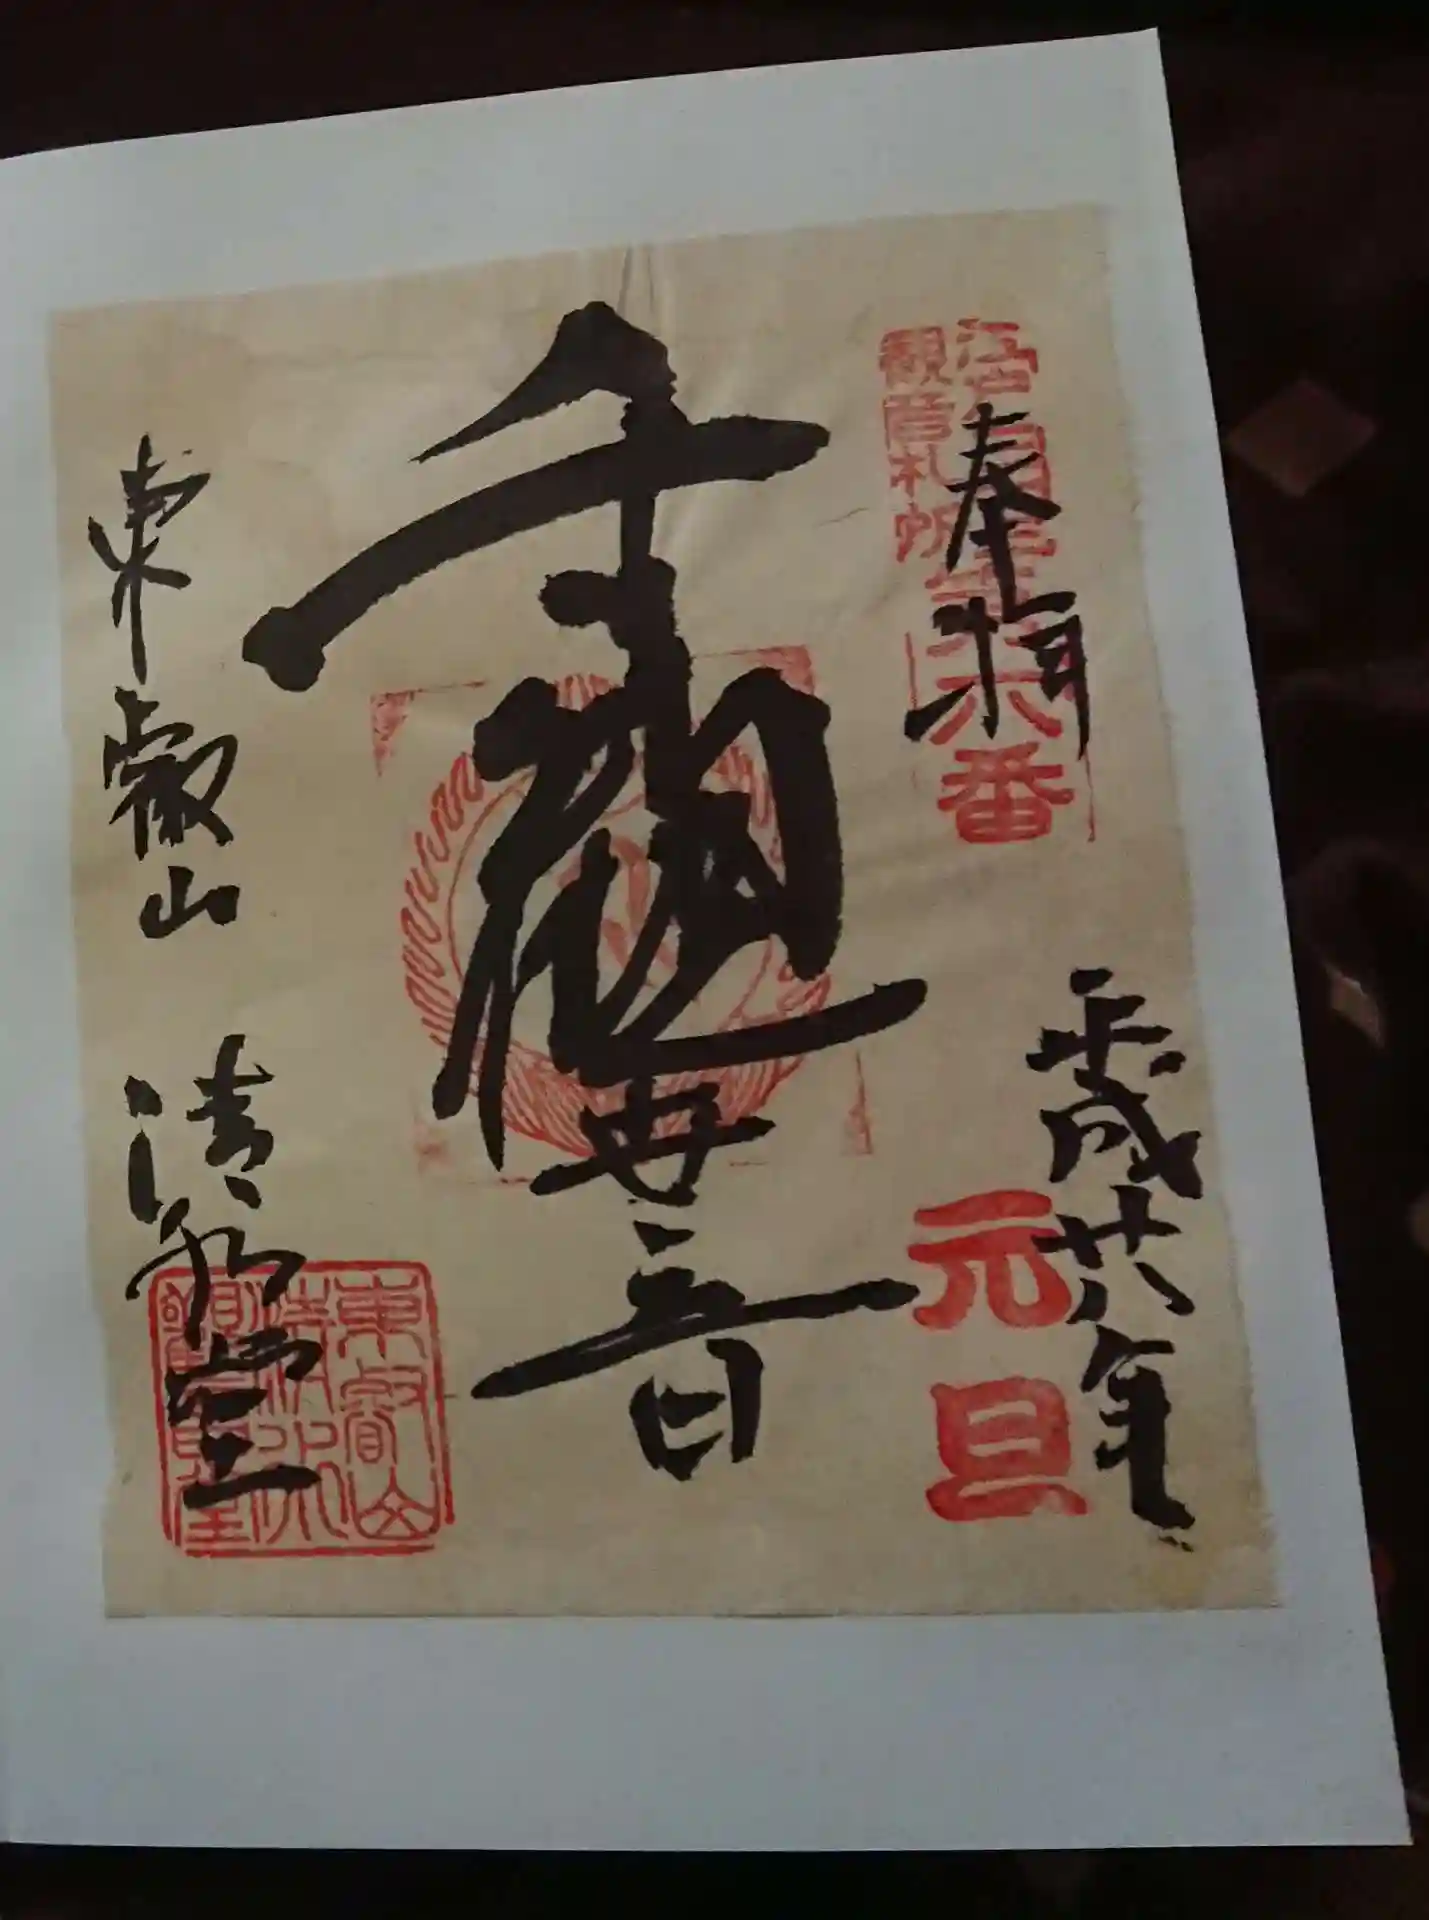 奉拝
平成廿八年
元旦
江戸
六番
観音札所
千手観世音
東叡山 清水堂
東叡山
清水
観音堂